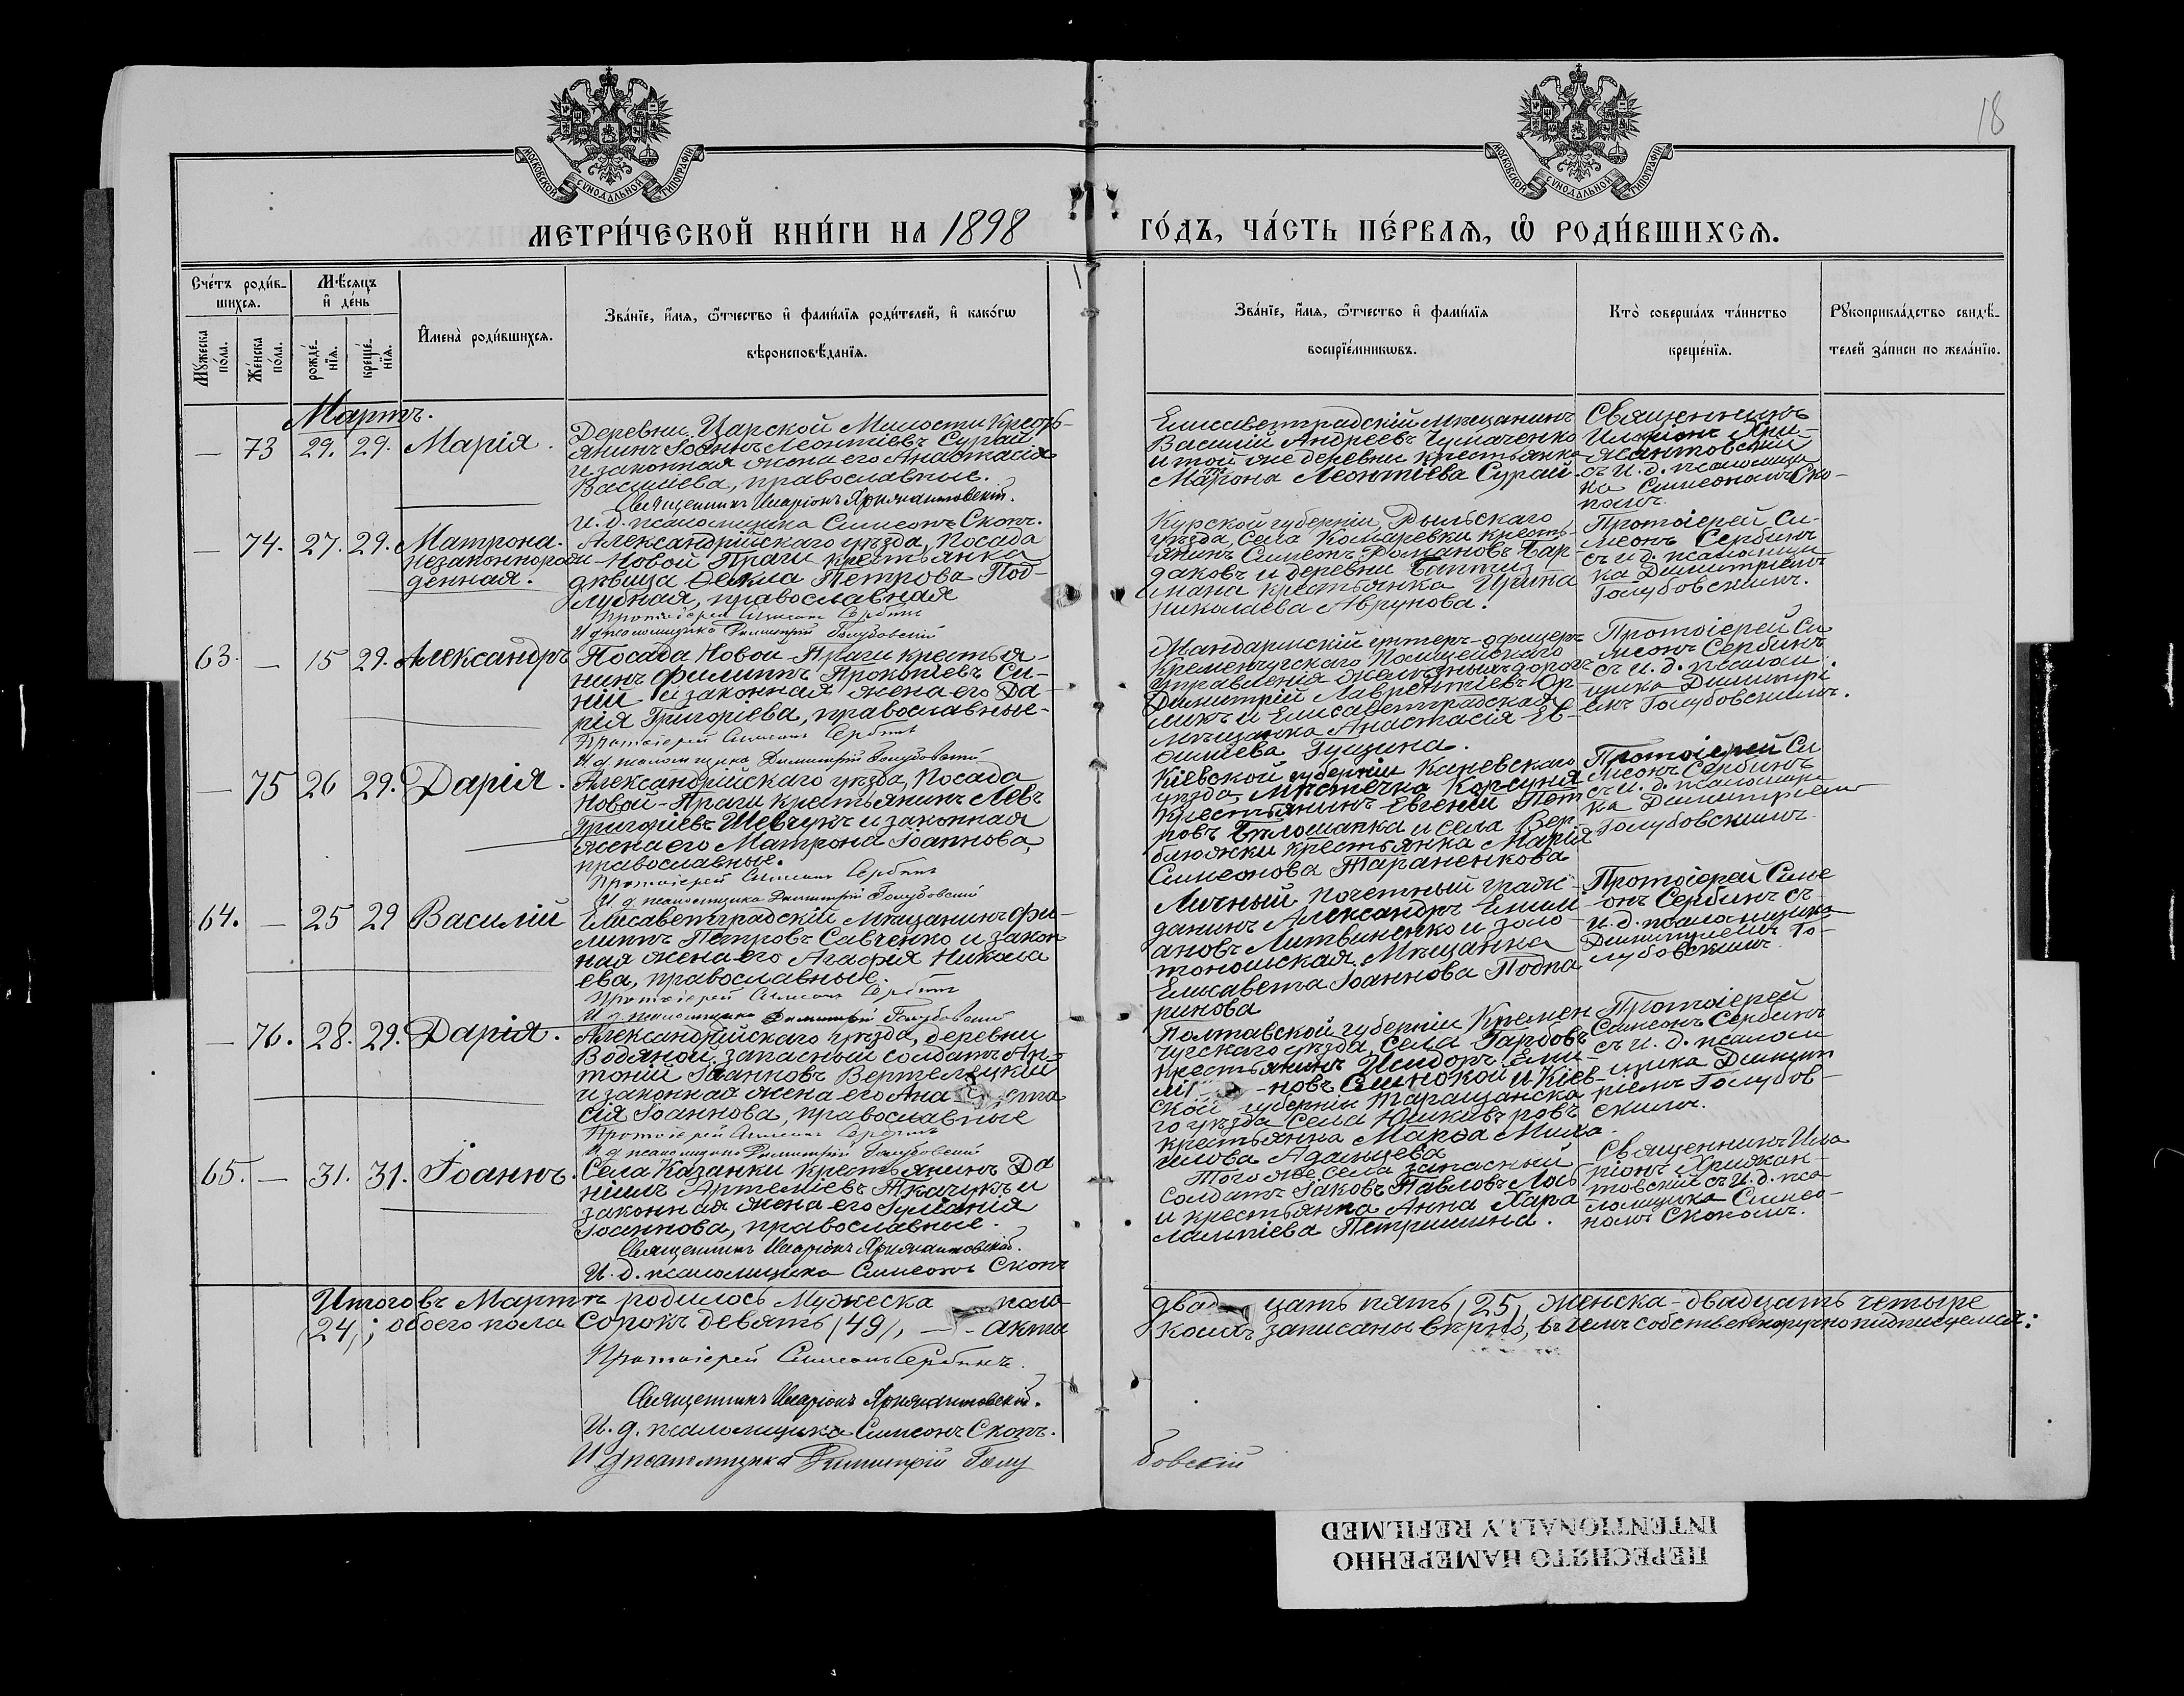 18
МОСКОВСКОЙ СУНОДАЛЬНОЙ ТИПОГРАФІИ
МОСКОВСКОЙ СУНОДАЛЬНОЙ ТИПОГРАФІИ
МЕТРИ́ЧЕСКОЙ КНИ́ГИ НА 1898
ГО́ДЪ, ЧА́СТЬ ПЕ́РВАѦ, Ѽ РОДИ́ВШИХСѦ.
Сче́тъ роди́в-
шихсѧ.
Мꙋ́жеска по́ла.
Же́нска по́ла.
Мѣ́сѧцъ
и҆ де́нь
рожде́-
нїѧ.
креще́-
нїѧ.
И҆мена̀ роди́вшихсѧ.
Зва́нїе, и҆́мѧ, ѻ҆́тчество и҆ фами́лїѧ роди́телей, и҆ како́гѡ
вѣроисповѣ́данїѧ.
Зва́нїе, и҆́мѧ, ѻ҆́тчество и҆ фами́лїѧ
воспрїе́мникѡвъ.
Кто̀ соверша́лъ та́инство
креще́нїѧ.
Рꙋкоприкла́дство свидѣ́-
телей за́писи по жела́нїю.
Мартъ.
— 73 29. 29. Марія.
Деревни Царской Милости кресть-
янинъ Іоаннъ Леонтіевъ Сурай
и законная жена его Анастасія
Васильева, православные.
Священникъ Иларіонъ Хрижантовскій.
И. д. псаломщика Симеонъ Скопъ.
Елисаветградскій мѣщанинъ
Василій Андреевъ Чумаченко
и той же деревни крестьянка
Матрона Леонтіева Сурай.
Священникъ
Иларіонъ Хри-
жантовскій
съ И. д. псаломщи
ка Симеономъ Ско-
помъ.
— 74. 27. 29. Матрона.
незаконнорож-
денная.
Александрійскаго уѣзда, посада
Новой-Праги крестьянка
дѣвица Ѳекла Петрова Под-
лубная, православная
Протоіерей Симеонъ Сербинъ
И д псаломщика Димитрій Голубовскій
Курской губерніи, Рыльскаго
уѣзда, села Комаревки кресть-
янинъ Симеонъ Романовъ Бар-
даковъ и деревни
крестьянка Ирина
Николаева Аврунова.
Протоіерей Си-
меонъ Сербинъ
съ и д. псаломщи
ка Димитріемъ
Голубовскимъ.
63. — 15 29. Александръ
Посада Новой-Праги крестья-
нинъ Филиппъ Прокопіевъ Си-
ній и законная жена его Да-
рія Григоріева, православные-
Протоіерей Симеонъ Сербинъ
И д. псаломщика Димитрій Голубовскій
Жандармскій унтеръ-офицеръ
Кременчугскаго Полицейскаго
Управленія желѣзныхъ дорогъ
Димитрій Лаврентіевъ Ор
ликъ и Елисаветградская
мѣщанка Анастасія Ев-
ѳиміева Гущина.
Протоіерей Си
меонъ Сербинъ
съ и. д. псалом
щика Димитрі
емъ Голубовскимъ.
— 75 26 29. Дарія.
Александрійскаго уѣзда, посада
Новой-Праги крестьянинъ Левъ
Григоріевъ Шевчукъ и законная
жена его Матрона Іоаннова,
православные.
Протоіерей Симеонъ Сербинъ
И д. псаломщика Димитрій Голубовскій
Кіевской губерніи Каневскаго
уѣзда, мѣстечка Корсуня
крестьянинъ Евгеній Пет
ровъ Бѣлошапка и села Вер-
блюжки крестьянка Марія
Симеонова Тараненкова
Протоіерей Си
меонъ Сербинъ
съ и. д. псаломщи
ка Димитріемъ
Голубовскимъ.
64. — 25 29 Василій
Елисаветградскій мѣщанинъ Фи-
липпъ Петровъ Савченко и закон
ная жена его Агафія Никола
ева, православные.
Протоіерей Симеонъ Сербинъ
И д псаломщика Димитрій Голубовскій
Личный почетный граж-
данинъ Александръ Емили-
ановъ Литвиненко и золо
тоношская мѣщанка
Елисавета Іоаннова Подпа
ринова
Протоіерей Симе
онъ Сербинъ съ
и. д. псаломщика
Димитріемъ Го-
лубовскимъ.
— 76. 28. 29. Дарія.
Александрійскаго уѣзда, деревни
Водяной, запасный солдатъ Ан-
тоній Іоанновъ Вертелецкій
и законная жена его Ана ста
сія Іоаннова, православные
Протоіерей Симеонъ Сербинъ
И д псаломщика Димитрій Голубовскій
Полтавской губерніи Кремен
чугскаго уѣзда, села Гарбовъ
крестьянинъ Исидоръ Еми-
лі -новъ и Кіев-
ской губерніи Таращанска
го уѣзда села
крестьянка Марѳа Миха
илова Адамцева
Протоіерей
Симеонъ Сербинъ
съ и. д. псалом
щика Димит
ріемъ Голубов-
скимъ.
65. — 31. 31. Іоаннъ.
Села Казанки крестьянинъ Да
ніилъ Артеміевъ Ткачукъ и
законная жена его Іуліанія
Іоаннова, православные.
Священникъ Иларіонъ Хрижантовскій.
И. д. псаломщика Симеонъ Скопъ
Того же села запасный
солдатъ Іаковъ Павловъ Лось
и крестьянка Анна Хара
лампіева Петришина.
Священникъ Ила
ріонъ Хрижан-
товскій съ И. д. пса
ломщика Симео-
номъ Скопомъ.
Итого въ Мартѣ родилось мужеска пола
двад цать пять (25), женска-двадцать четыре
(24); обоего пола сорокъ девять (49), — акты
коихъ записаны вѣрно, въ чемъ собственноручно подписуемся:
Протоіерей Симеонъ Сербинъ.
Священникъ Иларіонъ Хрижантовскій.
И. д. псаломщика Симеонъ Скопъ.
И д псаломщика Димитрій Голу
бовскій
ПЕРЕСНЯТО НАМЕРЕННО
INTENTIONALLY REFILMED